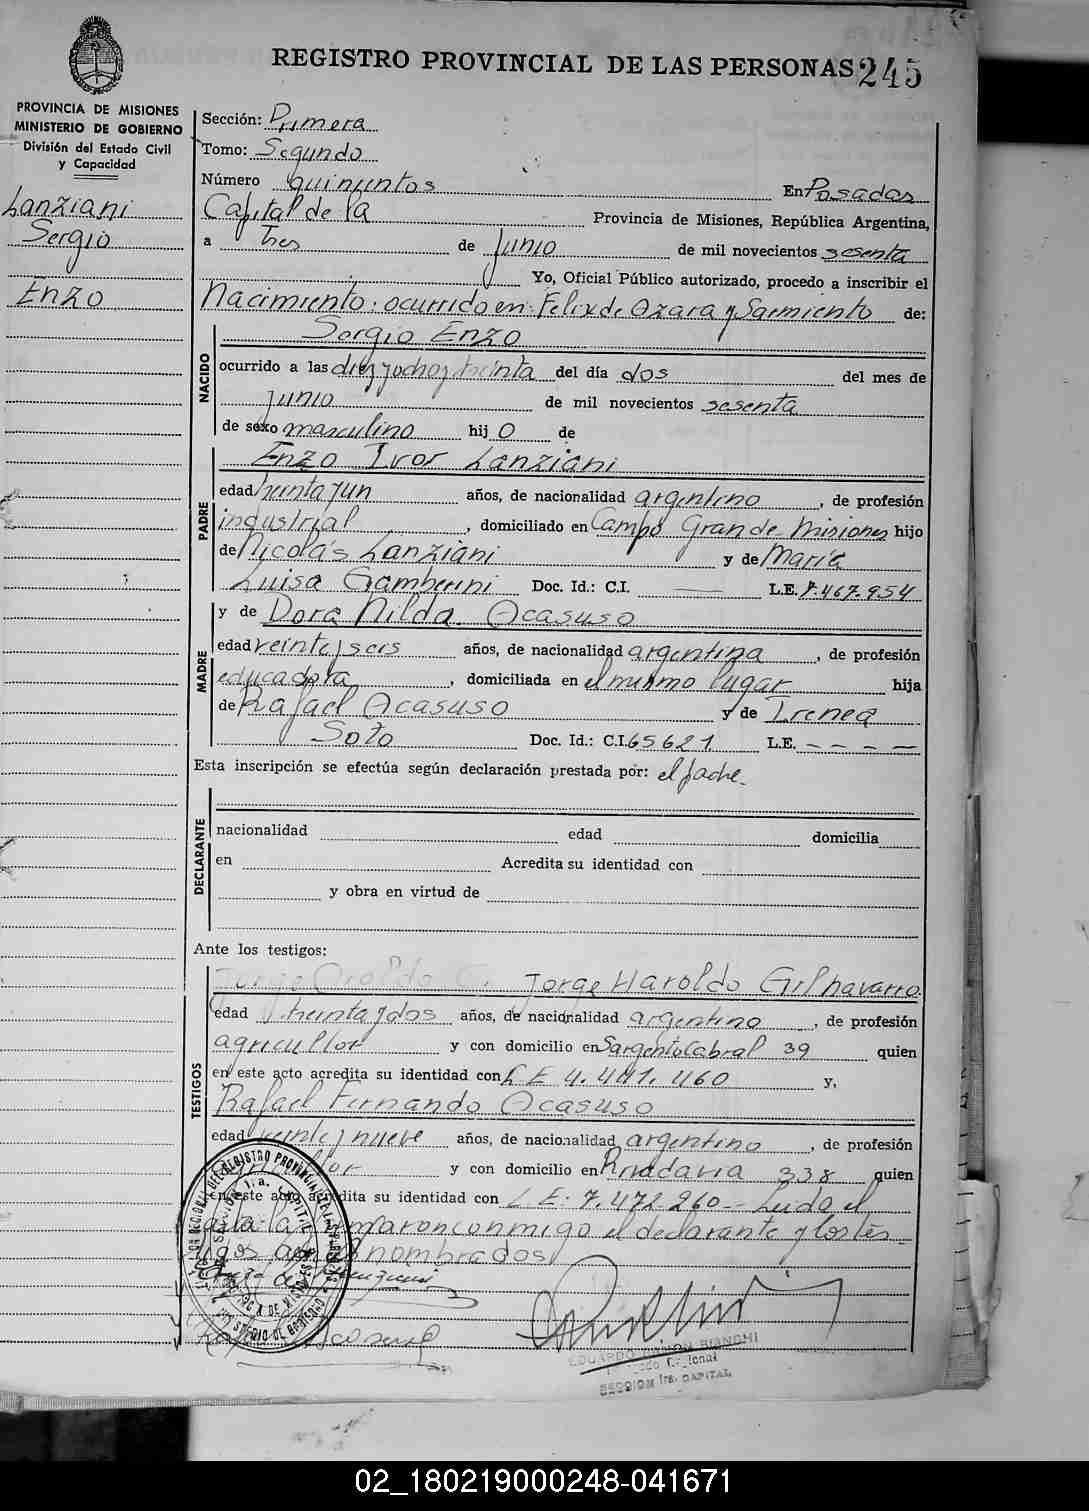 REGISTRO PROVINCIAL DE LAS PERSONAS 245
PROVINCIA DE MISIONES
MINISTERIO DE GOBIERNO
División del Estado Civil
y Capacidad
Lanziani
Sergio
Enzo
Sección: Primera
Tomo: Segundo
Número quinientos En Posadas
Capital de la Provincia de Misiones, República Argentina,
a tres de junio de mil novecientos sesenta
Yo, Oficial Público autorizado, procedo a inscribir el
Nacimiento: ocurrido en: Felix de Azara y Sarmiento de:
Sergio Enzo
NACIDO
ocurrido a las diez y ocho y treinta del día dos del mes de
junio de mil novecientos sesenta
de sexo masculino hij o de
Enzo Ivor Lanziani
PADRE
edad treinta y un años, de nacionalidad argentino, de profesión
industrial, domiciliado en Campo Grande-Misiones hijo
de Nicolás Lanziani y de María
Luisa Gamberini Doc. Id.: C.I. — L.E. 7.467.954
y de Dora Nilda Acasuso
MADRE
edad veinte y seis años, de nacionalidad argentina, de profesión
educadora, domiciliada en el mismo lugar hija
de Rafael Acasuso y de Irenea
Soto Doc. Id.: C.I. 65621 L.E. - - - -
Esta inscripción se efectúa según declaración prestada por: el padre.
DECLARANTE
nacionalidad edad domicilia
en Acredita su identidad con
y obra en virtud de
Ante los testigos:
Jorge Haroldo Gil Navarro
TESTIGOS
edad treinta y dos años, de nacionalidad argentino, de profesión
agricultor y con domicilio en Sargento Cabral 39 quien
en este acto acredita su identidad con L E 4.441.460 y,
Rafael Fernando Acasuso
edad veinte y nueve años, de nacionalidad argentino, de profesión
y con domicilio en Rivadavia 338 quien
en este acto acredita su identidad con L.E. 7.472.260-- Leida el
acta la firmaron conmigo el declarante y los tes-
tigos nombrados
EDUARDO BIANCHI
SECCION 1ra. CAPITAL
02_180219000248-041671